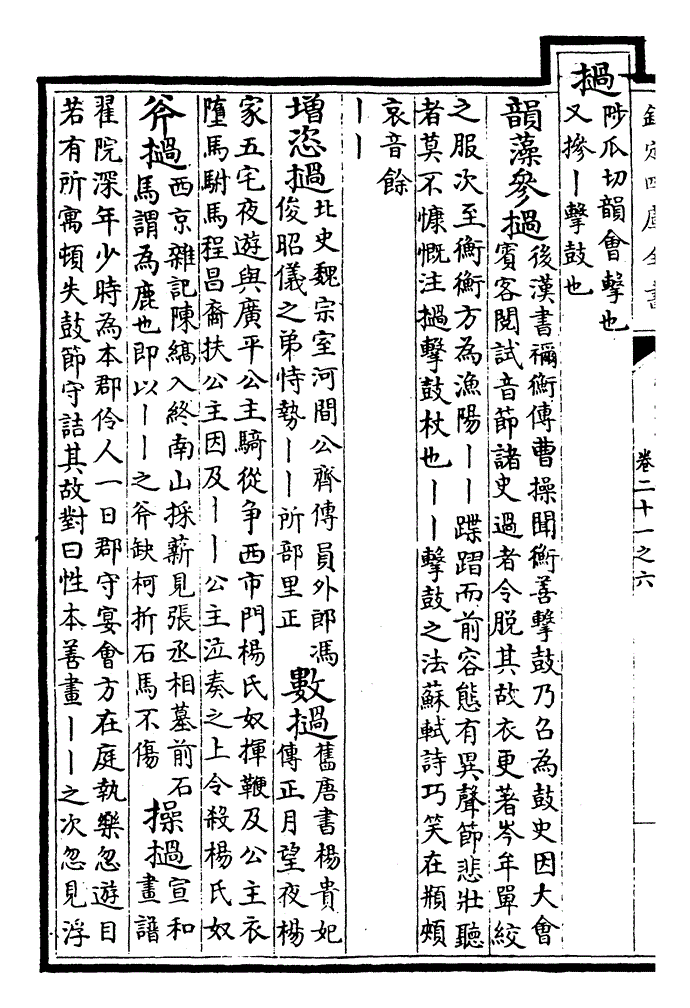 欽定四庫全書
卷二十一之六
撾陟瓜切韻會擊也
又摻丨擊鼓也
韻藻參撾後漢書禰衡傳曹操聞衡善擊鼓乃召為鼓史因大會
賓客閱試音節諸史過者令脫其故衣更著岑年單絞
之服次至衡衡方為漁陽丨丨蹀蹈而前容態有異聲節悲壯聽
者莫不慷慨注撾擊鼓杖也丨丨擊鼓之法蘇軾詩巧笑在瓶頰
哀音餘
丨丨
增恣撾北史魏宗室河間公齊傳員外郎馮
俊昭儀之弟恃勢丨丨所部里正
數撾舊唐書楊貴妃
傳正月望夜楊
家五宅夜遊與廣平公主騎從爭西市門楊氏奴揮鞭及公主衣
墮馬駙馬程昌裔扶公主因及丨丨公主泣奏之上令殺楊氏奴
斧撾西京雜記陳縞入終南山採薪見張丞相墓前石
馬謂為鹿也即以丨丨之斧缺柯折石馬不傷
操撾宣和
畫譜
翟院深年少時為本郡伶人一日郡守宴會方在庭執樂忽遊目
若有所寓頓失鼓節守詰其故對曰性本善畫丨丨之次忽見浮